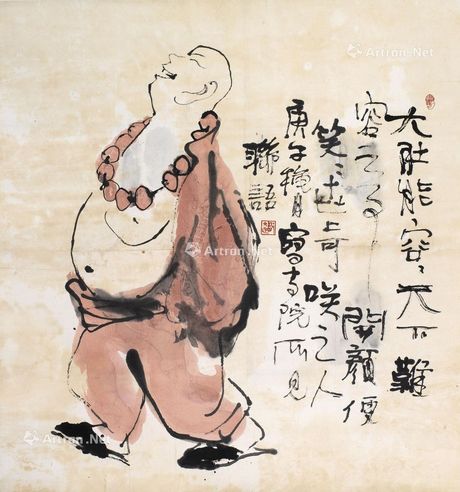 大肚能容〻天下難
容之事開顏便
笑〻世上可咲之人
庚午穐月寫寺院所見
聯語
Artron.Net
Artron.Net
Artron.Net
Artron.Net